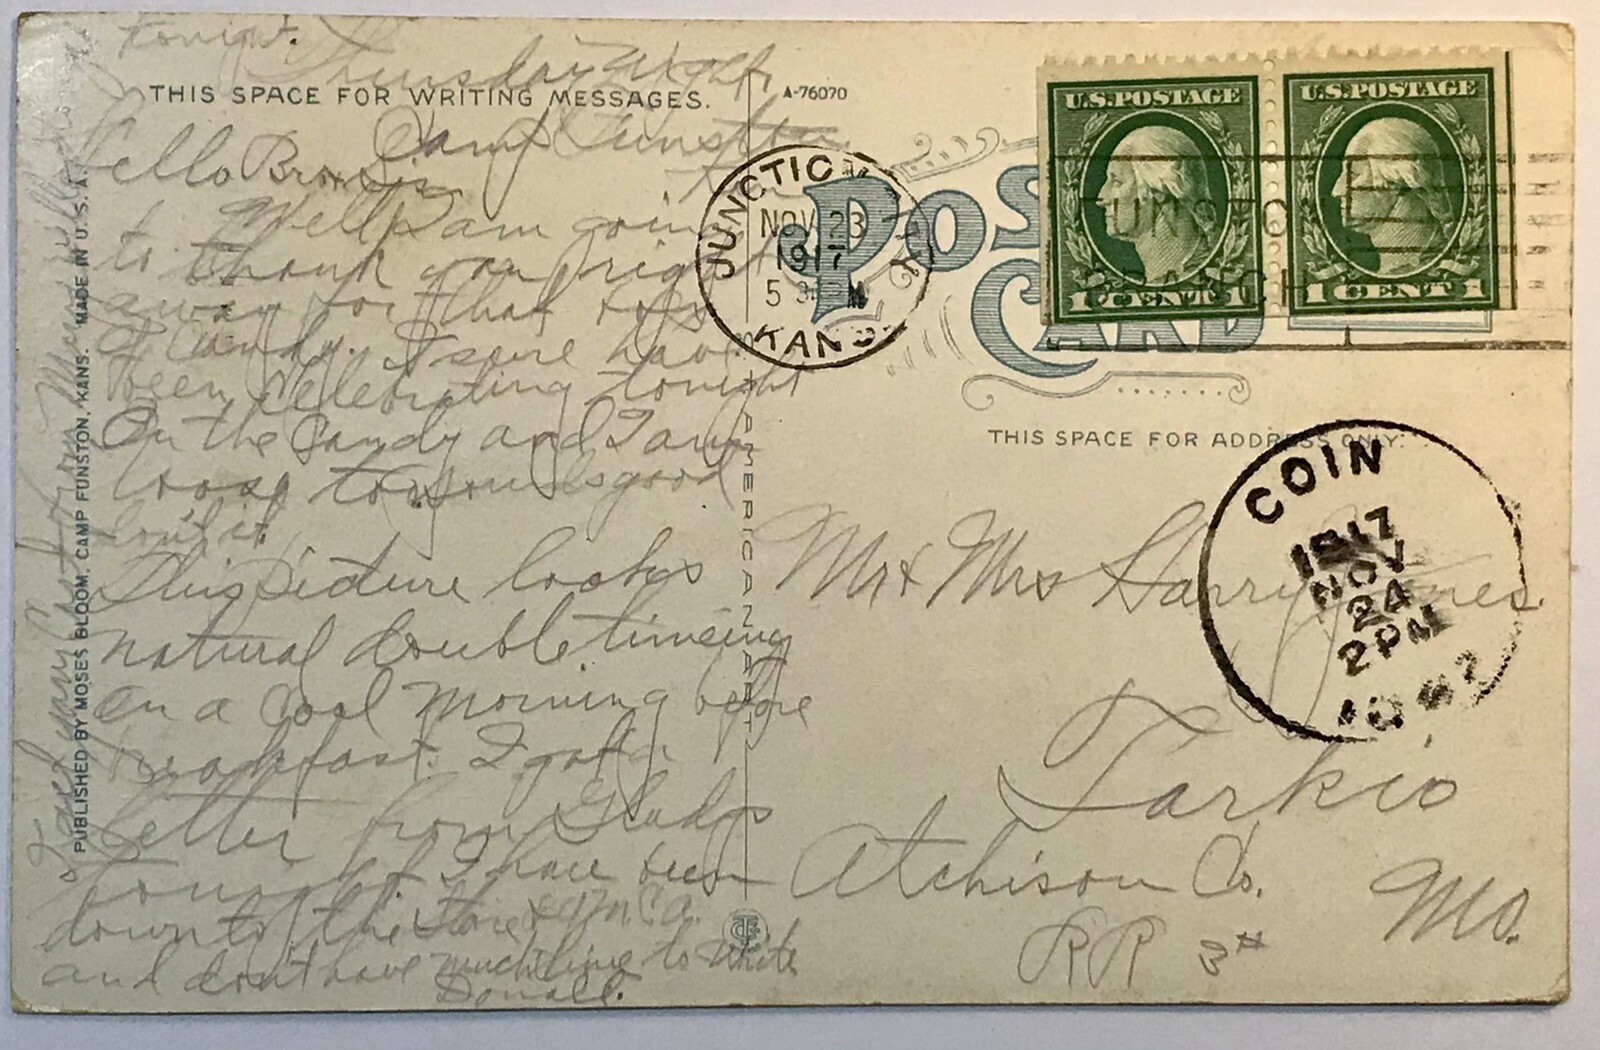 tonight.
Thursday Night
THIS SPACE FOR WRITING MESSAGES.
Camp Funston
Hello Bro & Sis
Well I am going
to thank you right
away for that box
of Candy. I sure have
been celebrating tonight
On the Candy and I am
too Sounds good
don't it.
This picture looks
natural double timeing
on a Cool morning before
breakfast. I got a
letter from Gladys
tonight. I have been
down to the Store & Y.M.C.A.
and don't have much time to write
Donald.
PUBLISHED BY MOSES BLOOM, CAMP FUNSTON, KANS. MADE IN U.S.A.
AMERICAN ART
A-76070
POST
CARD
JUNCTION CITY
NOV 23
1917
5 PM
KANS
FUNSTON
BRANCH
U.S. POSTAGE
1 CENT 1
U.S. POSTAGE
1 CENT 1
THIS SPACE FOR ADDRESS ONLY.
COIN
1917
NOV
24
2 PM
IOWA
Mr & Mrs Harry Jones.
Tarkio
Atchison Co.
Mo.
RR 3#